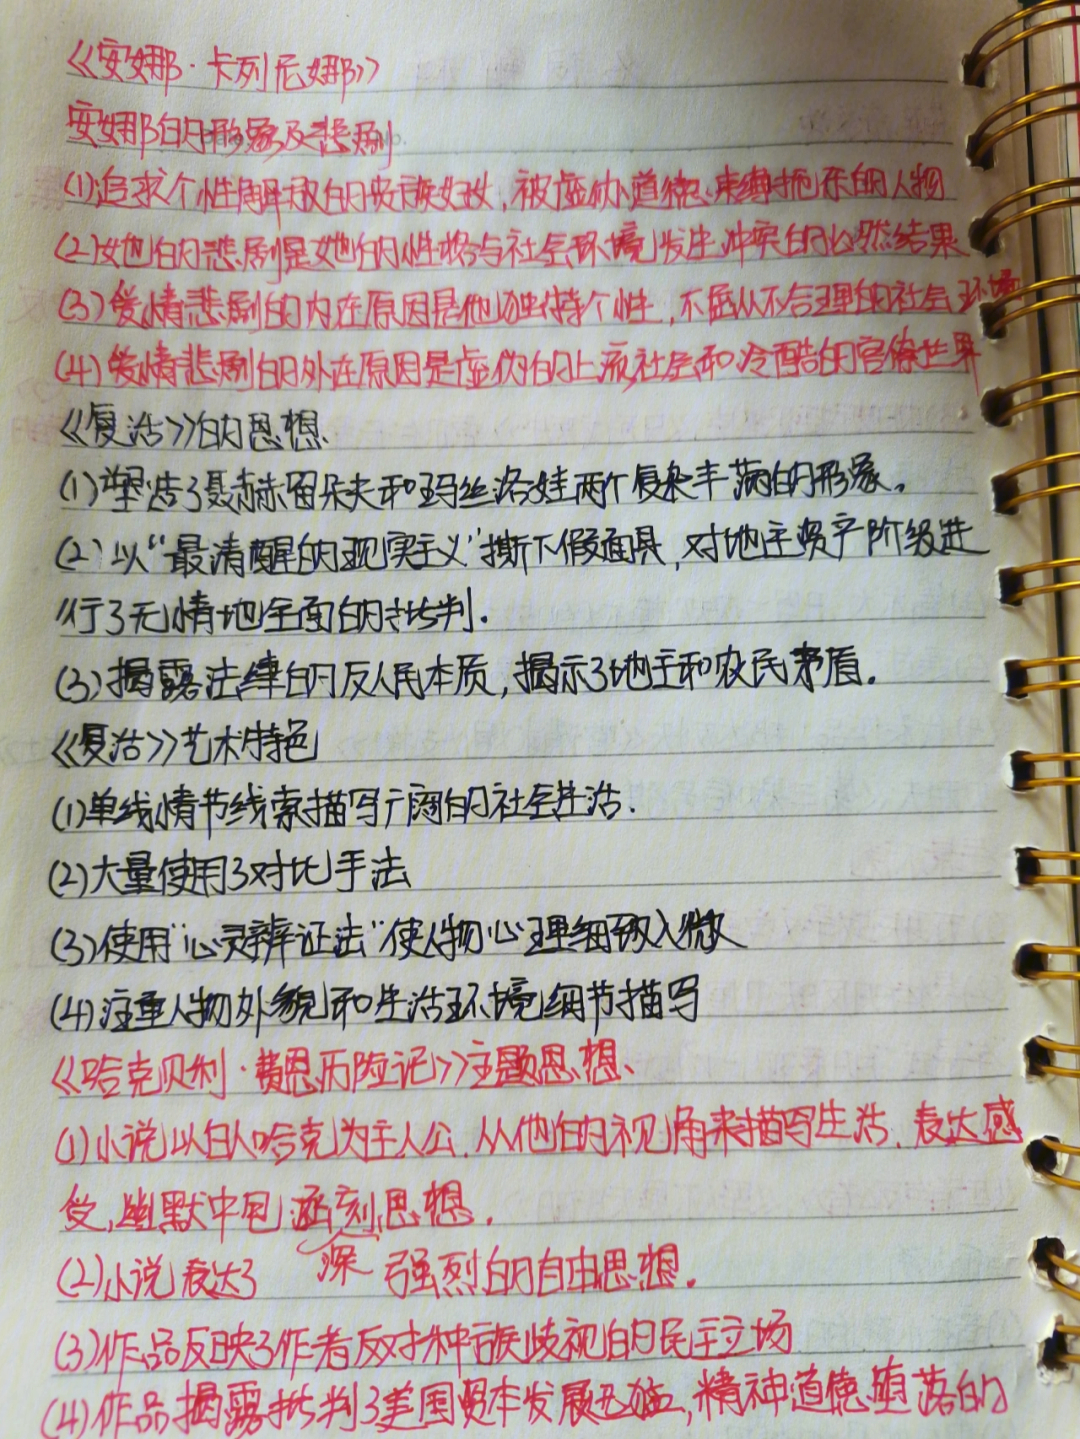 《安娜·卡列尼娜》
安娜的形象及悲剧
(1)追求个性解放的贵族妇女,被虚伪道德束缚扼杀的人物
(2)她的悲剧是她的性格与社会环境发生冲突的必然结果
(3)爱情悲剧的内在原因是他独特个性,不屈从不合理的社会环境
(4)爱情悲剧的外在原因是虚伪的上流社会和冷酷的官僚世界
《复活》的思想
(1)塑造了聂赫留朵夫和玛丝洛娃两个复杂丰满的形象。
(2)以“最清醒的现实主义”撕下假面具,对地主资产阶级进
行了无情地全面的批判.
(3)揭露法律的反人民本质,揭示了地主和农民矛盾.
《复活》艺术特色
(1)单线情节线索描写广阔的社会生活.
(2)大量使用了对比手法
(3)使用“心灵辨证法”使人物心理细致入微
(4)注重人物外貌和生活环境细节描写
《哈克贝利·费恩历险记》主题思想、
(1)小说以白人哈克为主人公.从他的视角来描写生活.表达感
受,幽默中包涵深刻思想.
(2)小说表达了 强烈的自由思想.
(3)作品反映了作者反对种族歧视的民主立场
(4)作品揭露批判了美国资本发展,精神道德堕落的